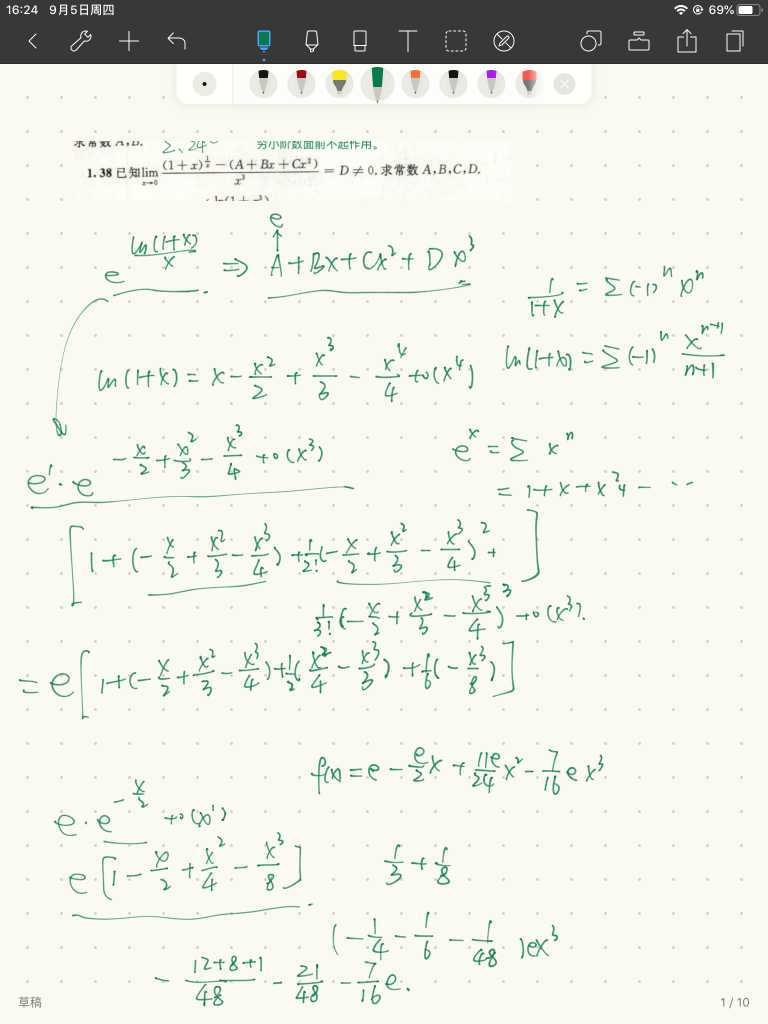 16:24 9月5日周四 69%
求常数 A,B.
2、24~ 穷小阶数面前不起作用。
1.38 已知 lim_{x→0} \frac{(1+x)^{\frac{1}{x}}-(A+Bx+Cx²)}{x³} = D ≠ 0. 求常数 A,B,C,D.
e
e^{\frac{ln(1+x)}{x}} ⇒ A+Bx+Cx²+Dx³
\frac{1}{1+x} = Σ(-1)^n x^n
ln(1+x) = x - \frac{x²}{2} + \frac{x³}{3} - \frac{x⁴}{4} + o(x⁴)
ln(1+x) = Σ(-1)^n \frac{x^{n+1}}{n+1}
e¹·e^{-\frac{x}{2}+\frac{x²}{3}-\frac{x³}{4}+o(x³)}
e^x = Σ x^n
= 1+x+x²+ - ··
[1+(-\frac{x}{2}+\frac{x²}{3}-\frac{x³}{4})+\frac{1}{2!}(-\frac{x}{2}+\frac{x²}{3}-\frac{x³}{4})²+ ]
\frac{1}{3!}(-\frac{x}{2}+\frac{x²}{3}-\frac{x³}{4})³+o(x³).
= e[1+(-\frac{x}{2}+\frac{x²}{3}-\frac{x³}{4})+\frac{1}{2}(\frac{x²}{4}-\frac{x³}{3})+\frac{1}{6}(-\frac{x³}{8})]
f(x)=e-\frac{e}{2}x+\frac{11e}{24}x²-\frac{7}{16}ex³
e·e^{-\frac{x}{2}}+o(x¹)
e[1-\frac{x}{2}+\frac{x²}{4}-\frac{x³}{8}]
\frac{1}{3}+\frac{1}{8}
(-\frac{1}{4}-\frac{1}{6}-\frac{1}{48})ex³
-\frac{12+8+1}{48} -\frac{21}{48} -\frac{7}{16}e.
草稿
1/10